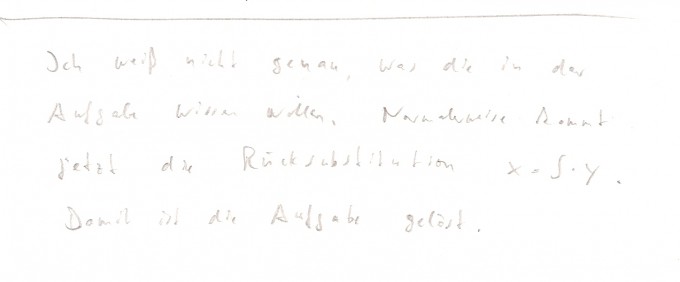 Ich weiß nicht genau, was die in der
Aufgabe wissen wollen. Normalerweise kommt
jetzt die Rücksubstitution x = S · y.
Damit ist die Aufgabe gelöst.